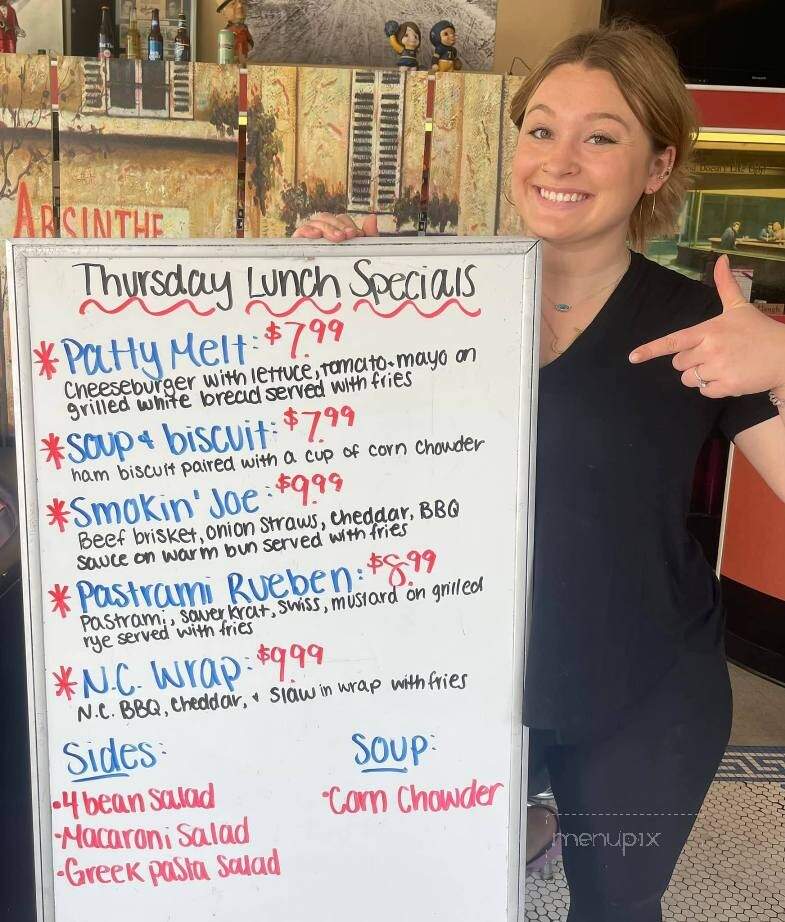 ABSINTHE
Thursday Lunch Specials
* Patty Melt: $7.99
Cheeseburger with lettuce, tomato + mayo on
grilled white bread served with fries
* Soup + biscuit: $7.99
ham biscuit paired with a cup of corn chowder
* Smokin' Joe: $9.99
Beef brisket, onion straws, cheddar, BBQ
sauce on warm bun served with fries
* Pastrami Rueben: $8.99
Pastrami, sauerkrat, swiss, mustard on grilled
rye served with fries
* N.C. Wrap: $9.99
N.C. BBQ, cheddar, + slaw in wrap with fries
Sides:
• 4 bean salad
- Macaroni Salad
- Greek pasta salad
Soup:
- Corn Chowder
menupix